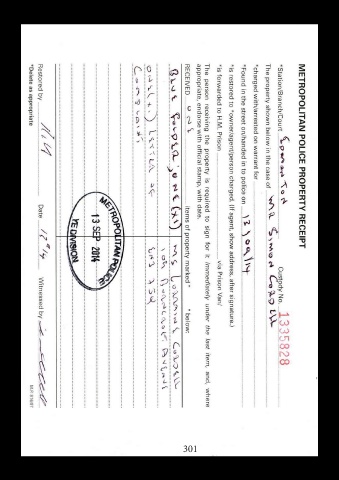 METROPOLITAN POLICE PROPERTY RECEIPT
*Station/Branch/Court EDMONTON Custody No. 1335828
The property shown below in the case of MR SIMON CORDELL
*charged with/arrested on warrant for
*Found in the street on/handed in to police on 13/09/14
*is restored to *owner/agent/person charged. (If agent, show address, after signature.)
*is forwarded to H.M. Prison via Prison Van/
The person receiving the property is required to sign for it immediately under the last item, and, where
appropriate, endorse with official stamp, with date.
RECEIVED ONE Items of property marked * *below:
BLUE FOLDER, ONE (X1) MS LORRAINE CORDELL
ONE (X1) LETTER OF 109 BURNCROFT AVENUE
COMPLAINT EN3 7JQ
METROPOLITAN POLICE
13 SEP 2014
YE DIVISION
Restored by Date Witnessed by
*Delete as appropriate
301